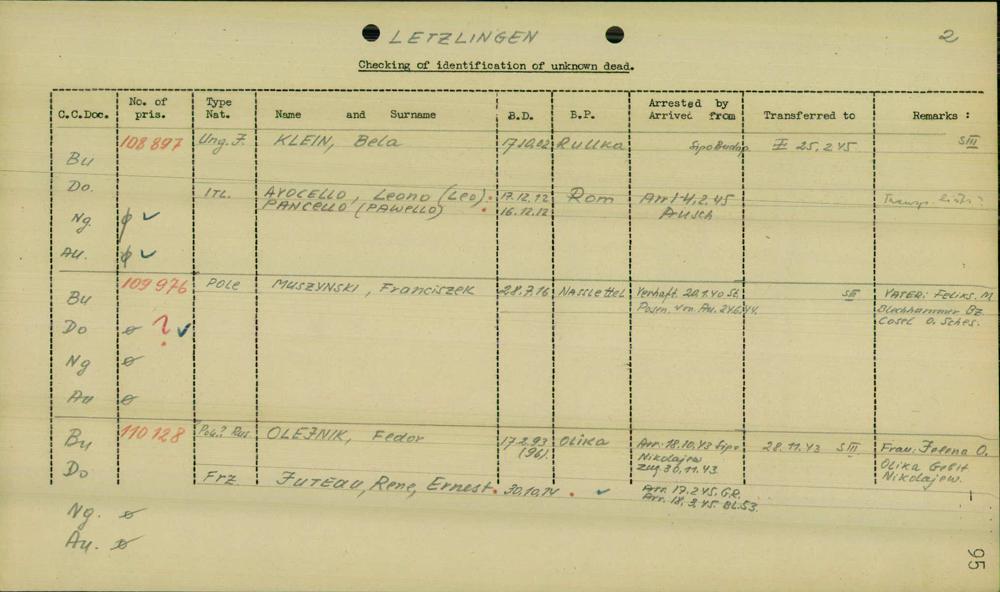 LETZLINGEN 2
Checking of identification of unknown dead.
C.C.Doc. No. of pris. Type Nat. Name and Surname B.D. B.P. Arrested by Arrived from Transferred to Remarks :
Bu 108 897 Ung. J. KLEIN, Bela 17.10.02 Rullka Sipo Budap. II 25.2.45 SIII
Do. ITL. AVOCELLO, Leono (Leo). 17.12.12 Rom Arr. 14.2.45
PANCELLO (PAWELLO) 16.12.12 Ausch
Ng. ø ✓
Au. ø ✓
Bu 109 976 POLE MUSZYNSKI, Franciszek 28.7.16 Nasslettel Verhaft. 20.1.40 St. SIII VATER: FELIKS. M
Posen. von Au. 24.6.44. Blechhammer Bz
Do ø ? ✓ Cosel O. Schles.
Ng ø
Au ø
Bu 110 128 Pole? Rus. OLEJNIK, Fedor 17.2.93 Olika Arr. 18.10.43 Sipo 28.11.43 SIII Frau: Jelena O.
(96). Nikolajew Olika Gebit
zug. 30.11.43 Nikolajew.
Do Frz JUTEAU, Rene, Ernest. 30.10.14. ✓ Arr. 17.2.45. G.R.
Arr. 18.3.45. BL.53.
Ng. ø
Au. ø
95